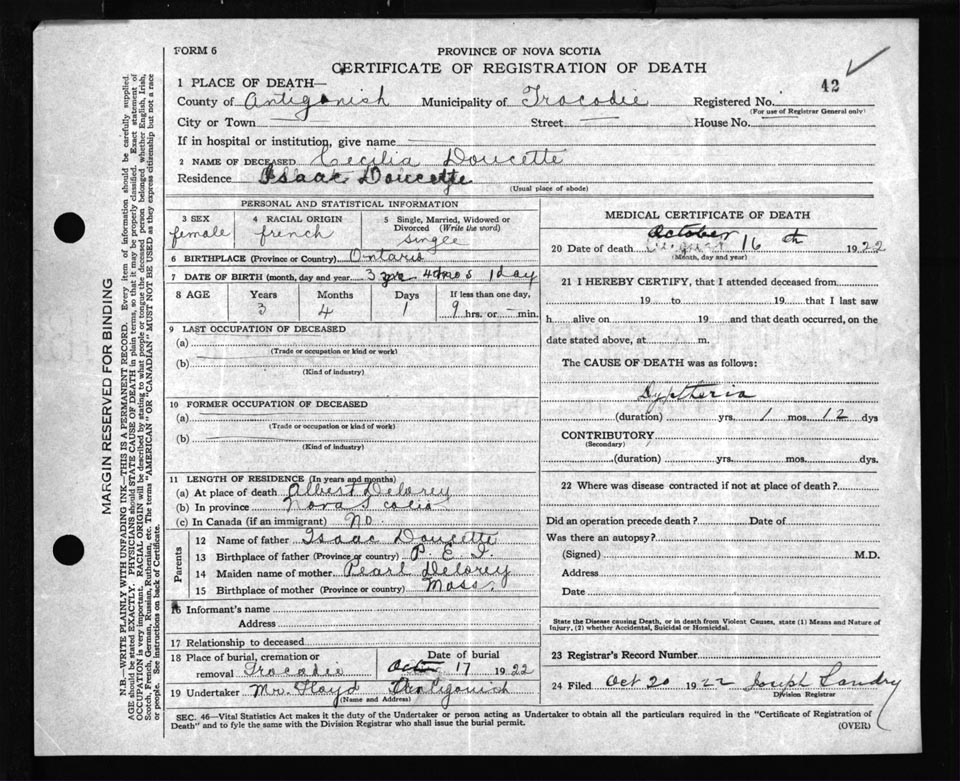 FORM 6
PROVINCE OF NOVA SCOTIA
CERTIFICATE OF REGISTRATION OF DEATH
42
1 PLACE OF DEATH—
County of Antigonish Municipality of Tracodie Registered No.
(For use of Registrar General only)
City or Town Street House No.
If in hospital or institution, give name
2 NAME OF DECEASED Cecilia Doucette
Residence Isaac Doucette
(Usual place of abode)
PERSONAL AND STATISTICAL INFORMATION
3 SEX female
4 RACIAL ORIGIN french
5 Single, Married, Widowed or Divorced (Write the word) single
6 BIRTHPLACE (Province or Country) Ontario
7 DATE OF BIRTH (month, day and year 3 yrs 4 mos 1 day
8 AGE Years Months Days If less than one day,
3 4 1 9 hrs. or — min.
9 LAST OCCUPATION OF DECEASED
(a)
(Trade or occupation or kind or work)
(b)
(Kind of industry)
10 FORMER OCCUPATION OF DECEASED
(a)
(Trade or occupation or kind of work)
(b)
(Kind of industry)
11 LENGTH OF RESIDENCE (In years and months)
(a) At place of death Albert Delorey
(b) In province Nova Scotia
(c) In Canada (if an immigrant) No
Parents
12 Name of father Isaac Doucette
13 Birthplace of father (Province or country) P. E. I.
14 Maiden name of mother Pearl Delorey
15 Birthplace of mother (Province or country) Mass.
16 Informant's name
Address
17 Relationship to deceased
18 Place of burial, cremation or removal Tracodie
Date of burial Oct 17 1922
19 Undertaker Mr. Floyd Antigonish
(Name and Address)
MEDICAL CERTIFICATE OF DEATH
20 Date of death October 16 th 1922
(Month, day and year)
21 I HEREBY CERTIFY, that I attended deceased from
19 to 19 that I last saw
h alive on 19 and that death occurred, on the
date stated above, at m.
The CAUSE OF DEATH was as follows:
Dyptheria
(duration) yrs. 1 mos. 12 dys
CONTRIBUTORY
(Secondary)
(duration) yrs. mos. dys.
22 Where was disease contracted if not at place of death?
Did an operation precede death? Date of
Was there an autopsy?
(Signed) M.D.
Address
Date
State the Disease causing Death, or in death from Violent Causes, state (1) Means and Nature of
Injury, (2) whether Accidental, Suicidal or Homicidal.
23 Registrar's Record Number
24 Filed Oct 20 1922 Joseph Landry
Division Registrar
SEC. 46—Vital Statistics Act makes it the duty of the Undertaker or person acting as Undertaker to obtain all the particulars required in the "Certificate of Registration of
Death" and to fyle the same with the Division Registrar who shall issue the burial permit. (OVER)
MARGIN RESERVED FOR BINDING
N.B.—WRITE PLAINLY WITH UNFADING INK—THIS IS A PERMANENT RECORD. Every item of information should be carefully supplied.
AGE should be stated EXACTLY. PHYSICIANS should STATE CAUSE OF DEATH in plain terms, so that it may be properly classified. Exact statement of
OCCUPATION is very important. RACIAL ORIGIN will be described by stating to what people or tongue the deceased person belonged whether English, Irish,
Scotch, French, German, Russian, Ruthenian, etc. The terms "AMERICAN" OR "CANADIAN" MUST NOT BE USED as they express citizenship but not a race
or people. See instructions on back of Certificate.